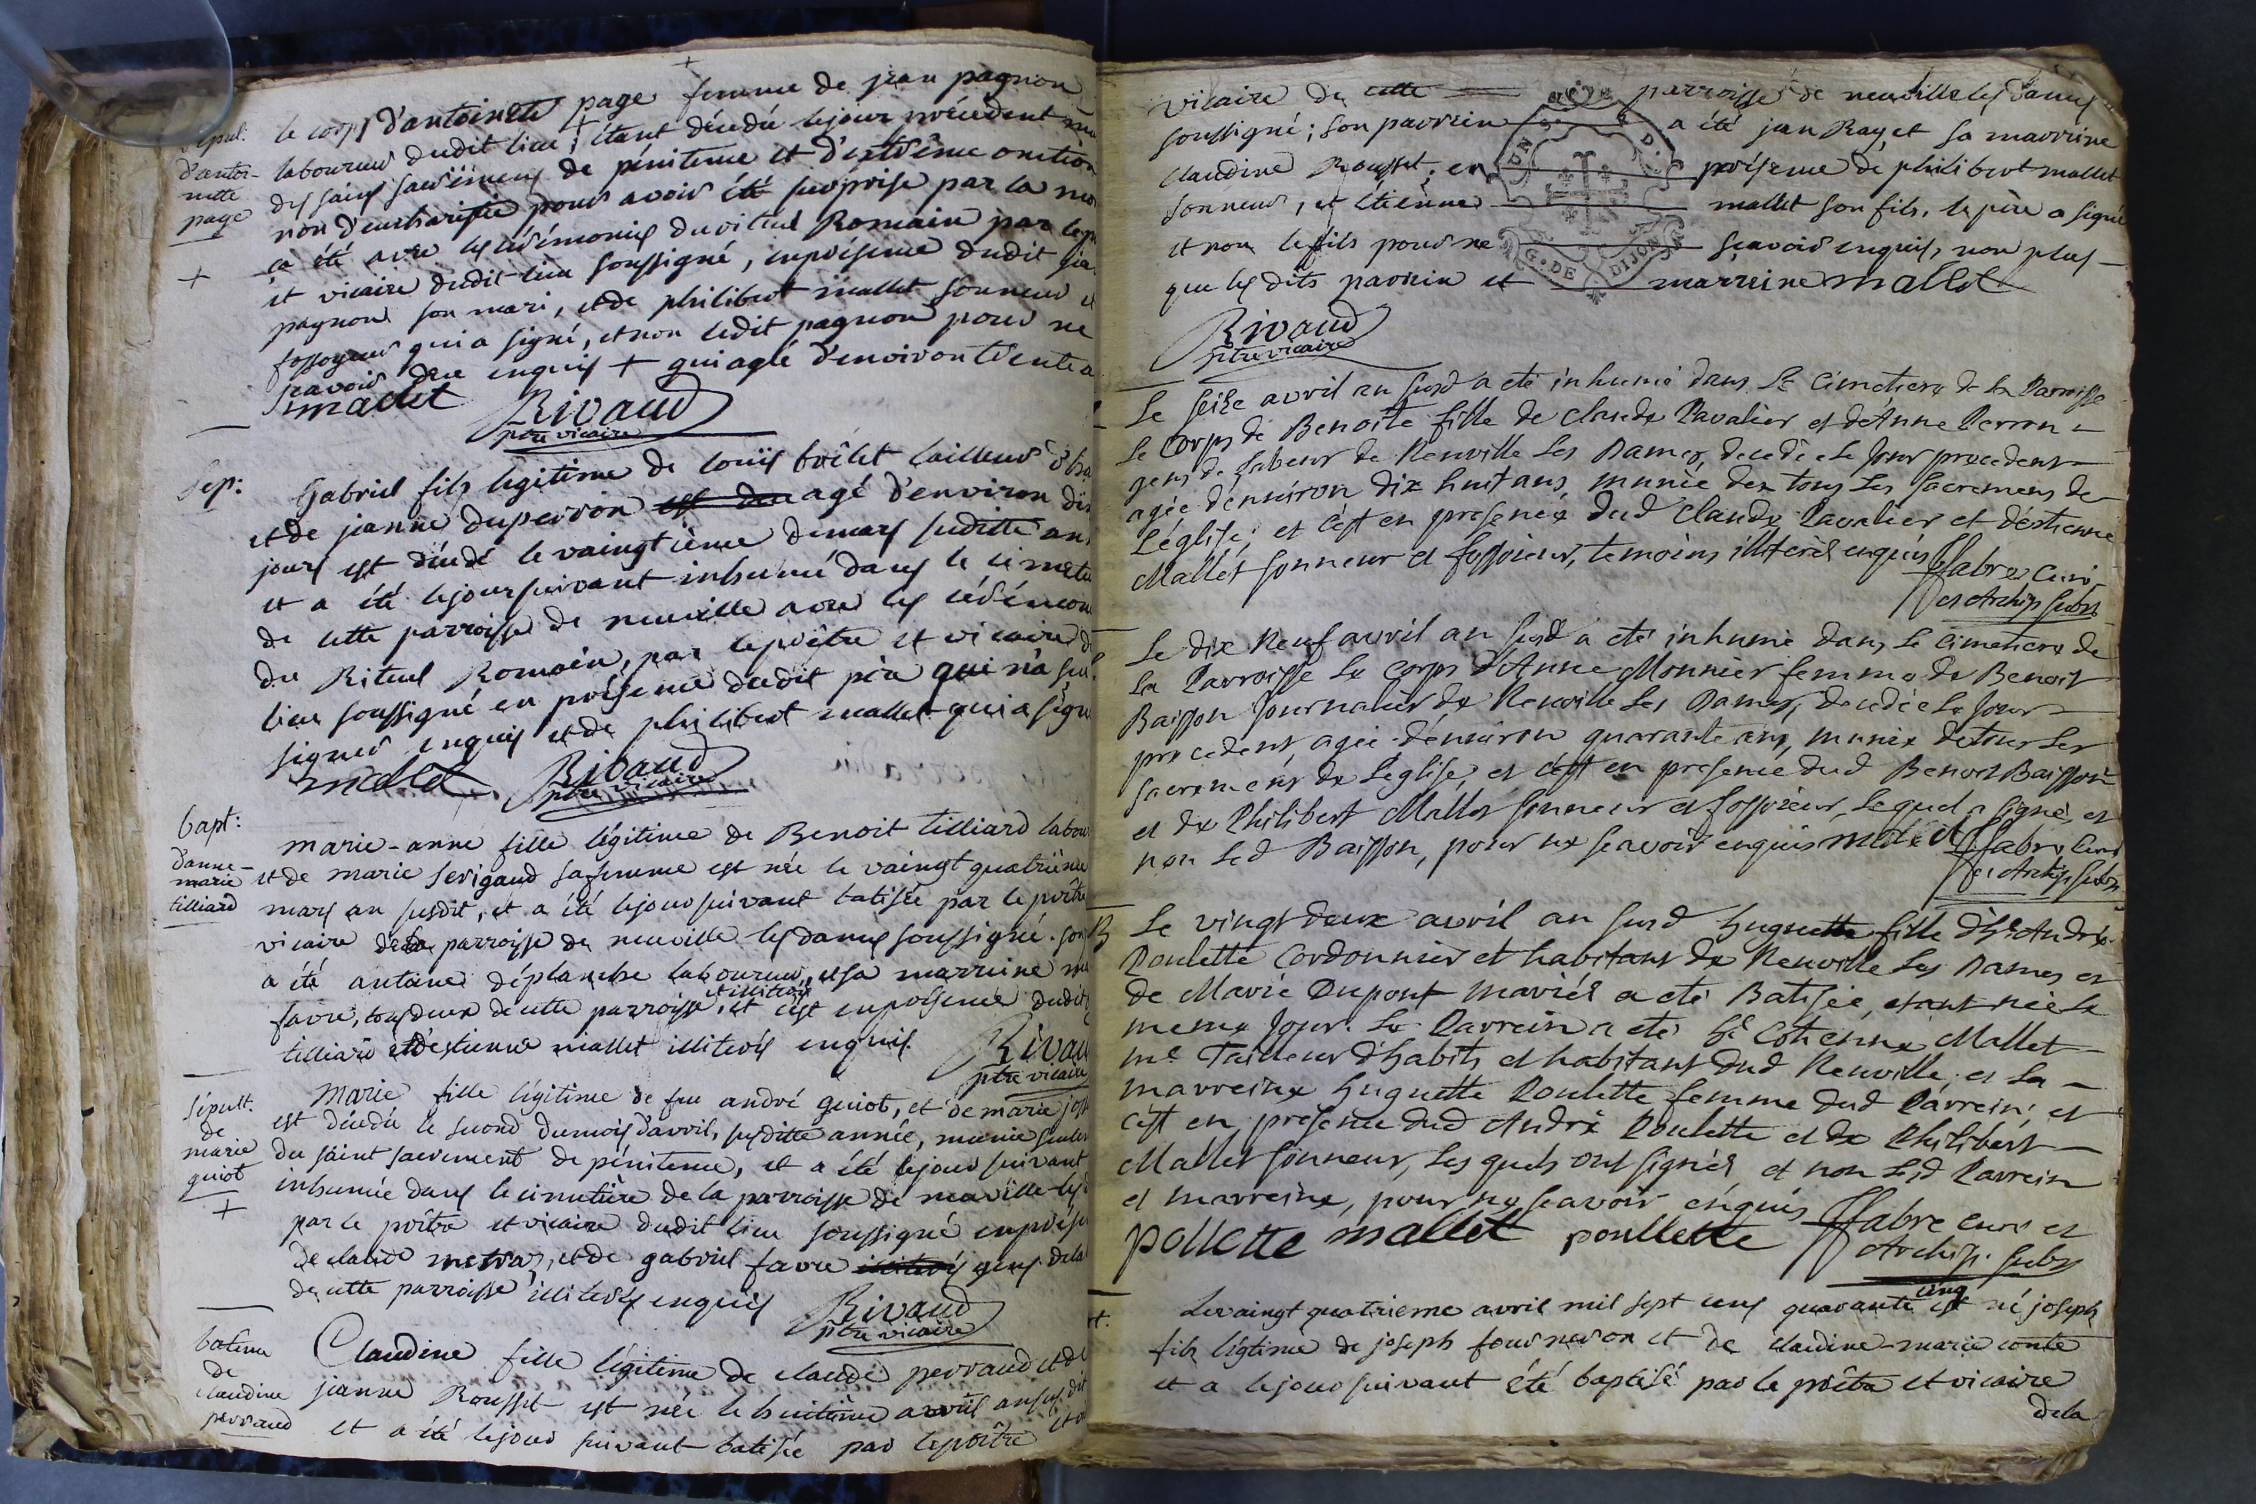 Sépul:
d'antoi-
nette
page
+
le corps d'antoinette page femme de jean pagnon
laboureur dudit lieu + étant décédée le jour précédent mu
des saints sacrémens de pénitence et d'extrême onction
non d'eucharistie pour avoir été surprise par la mo
a été avec les cérémonies du rituel Romain par le p
et vicaire dudit lieu soussigné, en présence dudit jea
pagnon son mari, et de philibert mallet sonneur et
fossoyeur qui a signé, et non ledit pagnon pour ne
sçavoir de ce enquis + qui agée d'environ trente a
mallet Rivaud
ptre vicaire
Sep:
Gabriel fils légitime de louis boilet tailleur d'ha
et de jeanne duperron agé d'environ dix
jours est décédé le vaingtième de mars suditte an
et a été le jour suivant inhumé dans le cimetie
de cette parroisse de neuville avec les cérémon
du Rituel Romain, par le prêtre et vicaire d
lieu soussigné en présence dudit père qui n'a sçu
signer enquis et de philibert mallet qui a signé
mallet Rivaud
ptre vicaire
bapt:
d'anne-
marie
tilliard
marie-anne fille légitime de Benoit tilliard labou
et de marie serigaud sa femme est née le vaingt quatrième
mars an susdit, et a été le jour suivant batisée par le prêtre
vicaire de la parroisse de neuville les dames soussigné. son
a été antoine déplanche laboureur, et sa marreine
favre, tous deux de cette parroisse, et illiterés et c'est en présence dudit
tilliard et d'estienne mallet illiterés enquis. Rivau
ptre vicaire
sépult.
de
marie
guiot
+
Marie fille légitime de feu andré guiot, et de marie jos
est décédée le second du mois d'avril, susditte année, munie seulem
du saint sacrement de pénitence, et a été le jour suivant
inhumée dans le cimetière de la parroisse de neuville-les-d
par le prêtre et vicaire dudit lieu soussigné en présen
de claude metras, et de gabriel favre illiterés gens de la
de cette parroisse illiterés enquis Rivaud
ptre vicaire
batême
de
claudine
perraud
Claudine fille légitime de claude perraud et de
jeanne Rousset est née le huitième avril an susdit
et a été le jour suivant batisée par le prêtre et v
vicaire de cette parroisse de neuville les dames
soussigné; son parrein a été jean Ray, et sa marrine
claudine Rousset, en présence de philibert mallet
sonneur, et étienne mallet son fils, le père a signé
et non le fils pour ne sçavoir enquis, non plus
que les dits parrein et marreine mallet
Rivaud
ptre vicaire
UN S. G. D. G. DE DIJON
Le seize avril an susd a eté inhumé dans le cimetiere de la Parroisse
le corps de Benoite fille de claude Cavalier et d'Anne Perron
gens de Labeur de Neuville les Dames, decedée le Jour precedent
agée d'environ dix huit ans, munie de tous les Sacremens de
L'église, et c'est en presence dud Claude Cavalier et d'estienne
Mallet sonneur et fossoieur, temoins illiterés enquis ffabre curé
et Archip. Subst
Le dix neuf avril an susd a eté inhumé dans le cimetiere de
la Parroisse le corps d'Anne Monnier femme de Benoit
Baisson Journalier de Neuville les Dames, decedée le Jour
precedent agée d'environ quarante ans, munie de tous les
sacremens de L'eglise, et c'est en presence dud Benoit Baisson
et de Philibert Mallet sonneur et fossoieur, lequel a signé, et
non led Baisson, pour ne sçavoir enquis mallet ffabre Curé
et Archip Subst
B
Le vingt deux avril an susd huguette fille d'hte Andrée
Poulette Cordonnier et habitant de Neuville les Dames et
de Marie Dupont mariés a eté Batisée, etant née le
meme Jour. Le Parrein a eté St Etienne Mallet
me Tailleur d'habits et habitant dud Neuville, et la
marreine huguette Poulette femme dud Parrein, et
c'est en presence dud André Poulette et de Philibert
Mallet sonneur, lesquels ont signés, et non lesd Parrein
et marreine, pour ne sçavoir enquis ffabre curé et
pollette mallet poullette Archip. Subst
Le vaingt quatrieme avril mil sept cens quarante cinq est né joseph
fils légitime de joseph fourneron et de claudine-marie conte
et a le jour suivant été baptisé par le prêtre et vicaire
de la